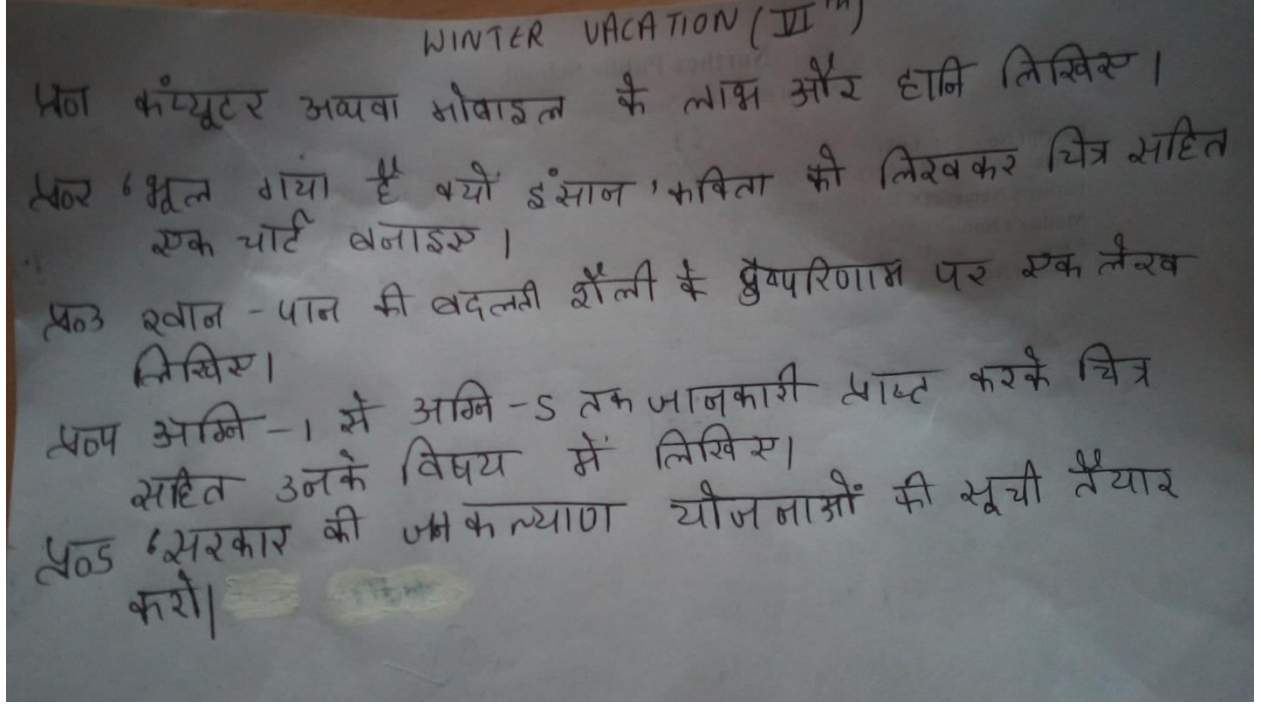 WINTER VACATION (VI TH)
प्र०1 कंप्यूटर अथवा मोबाइल के लाभ और हानि लिखिए।
प्र०2 'भूल गया है क्यों इंसान' कविता को लिखकर चित्र सहित
एक चार्ट बनाइए।
प्र०3 खान-पान की बदलती शैली के दुष्परिणाम पर एक लेख
लिखिए।
प्र०4 अग्नि-1 से अग्नि-5 तक जानकारी प्राप्त करके चित्र
सहित उनके विषय में लिखिए।
प्र०5 'सरकार की जनकल्याण योजनाओं की सूची तैयार
करो।